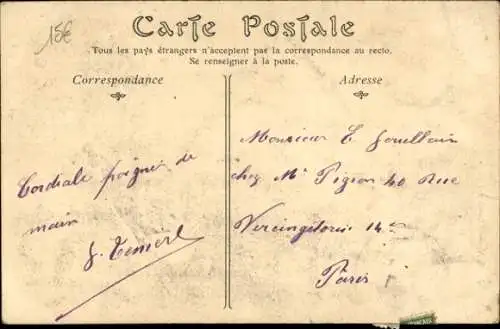 15€
Carte Postale
Tous les pays étrangers n'acceptent pas la correspondance au recto.
Se renseigner à la poste.
Correspondance
Adresse
Cordiale poignée de
main
Monsieur E.
chez Mr Pigeon 40 Rue
Vercingetorix 14e
Paris